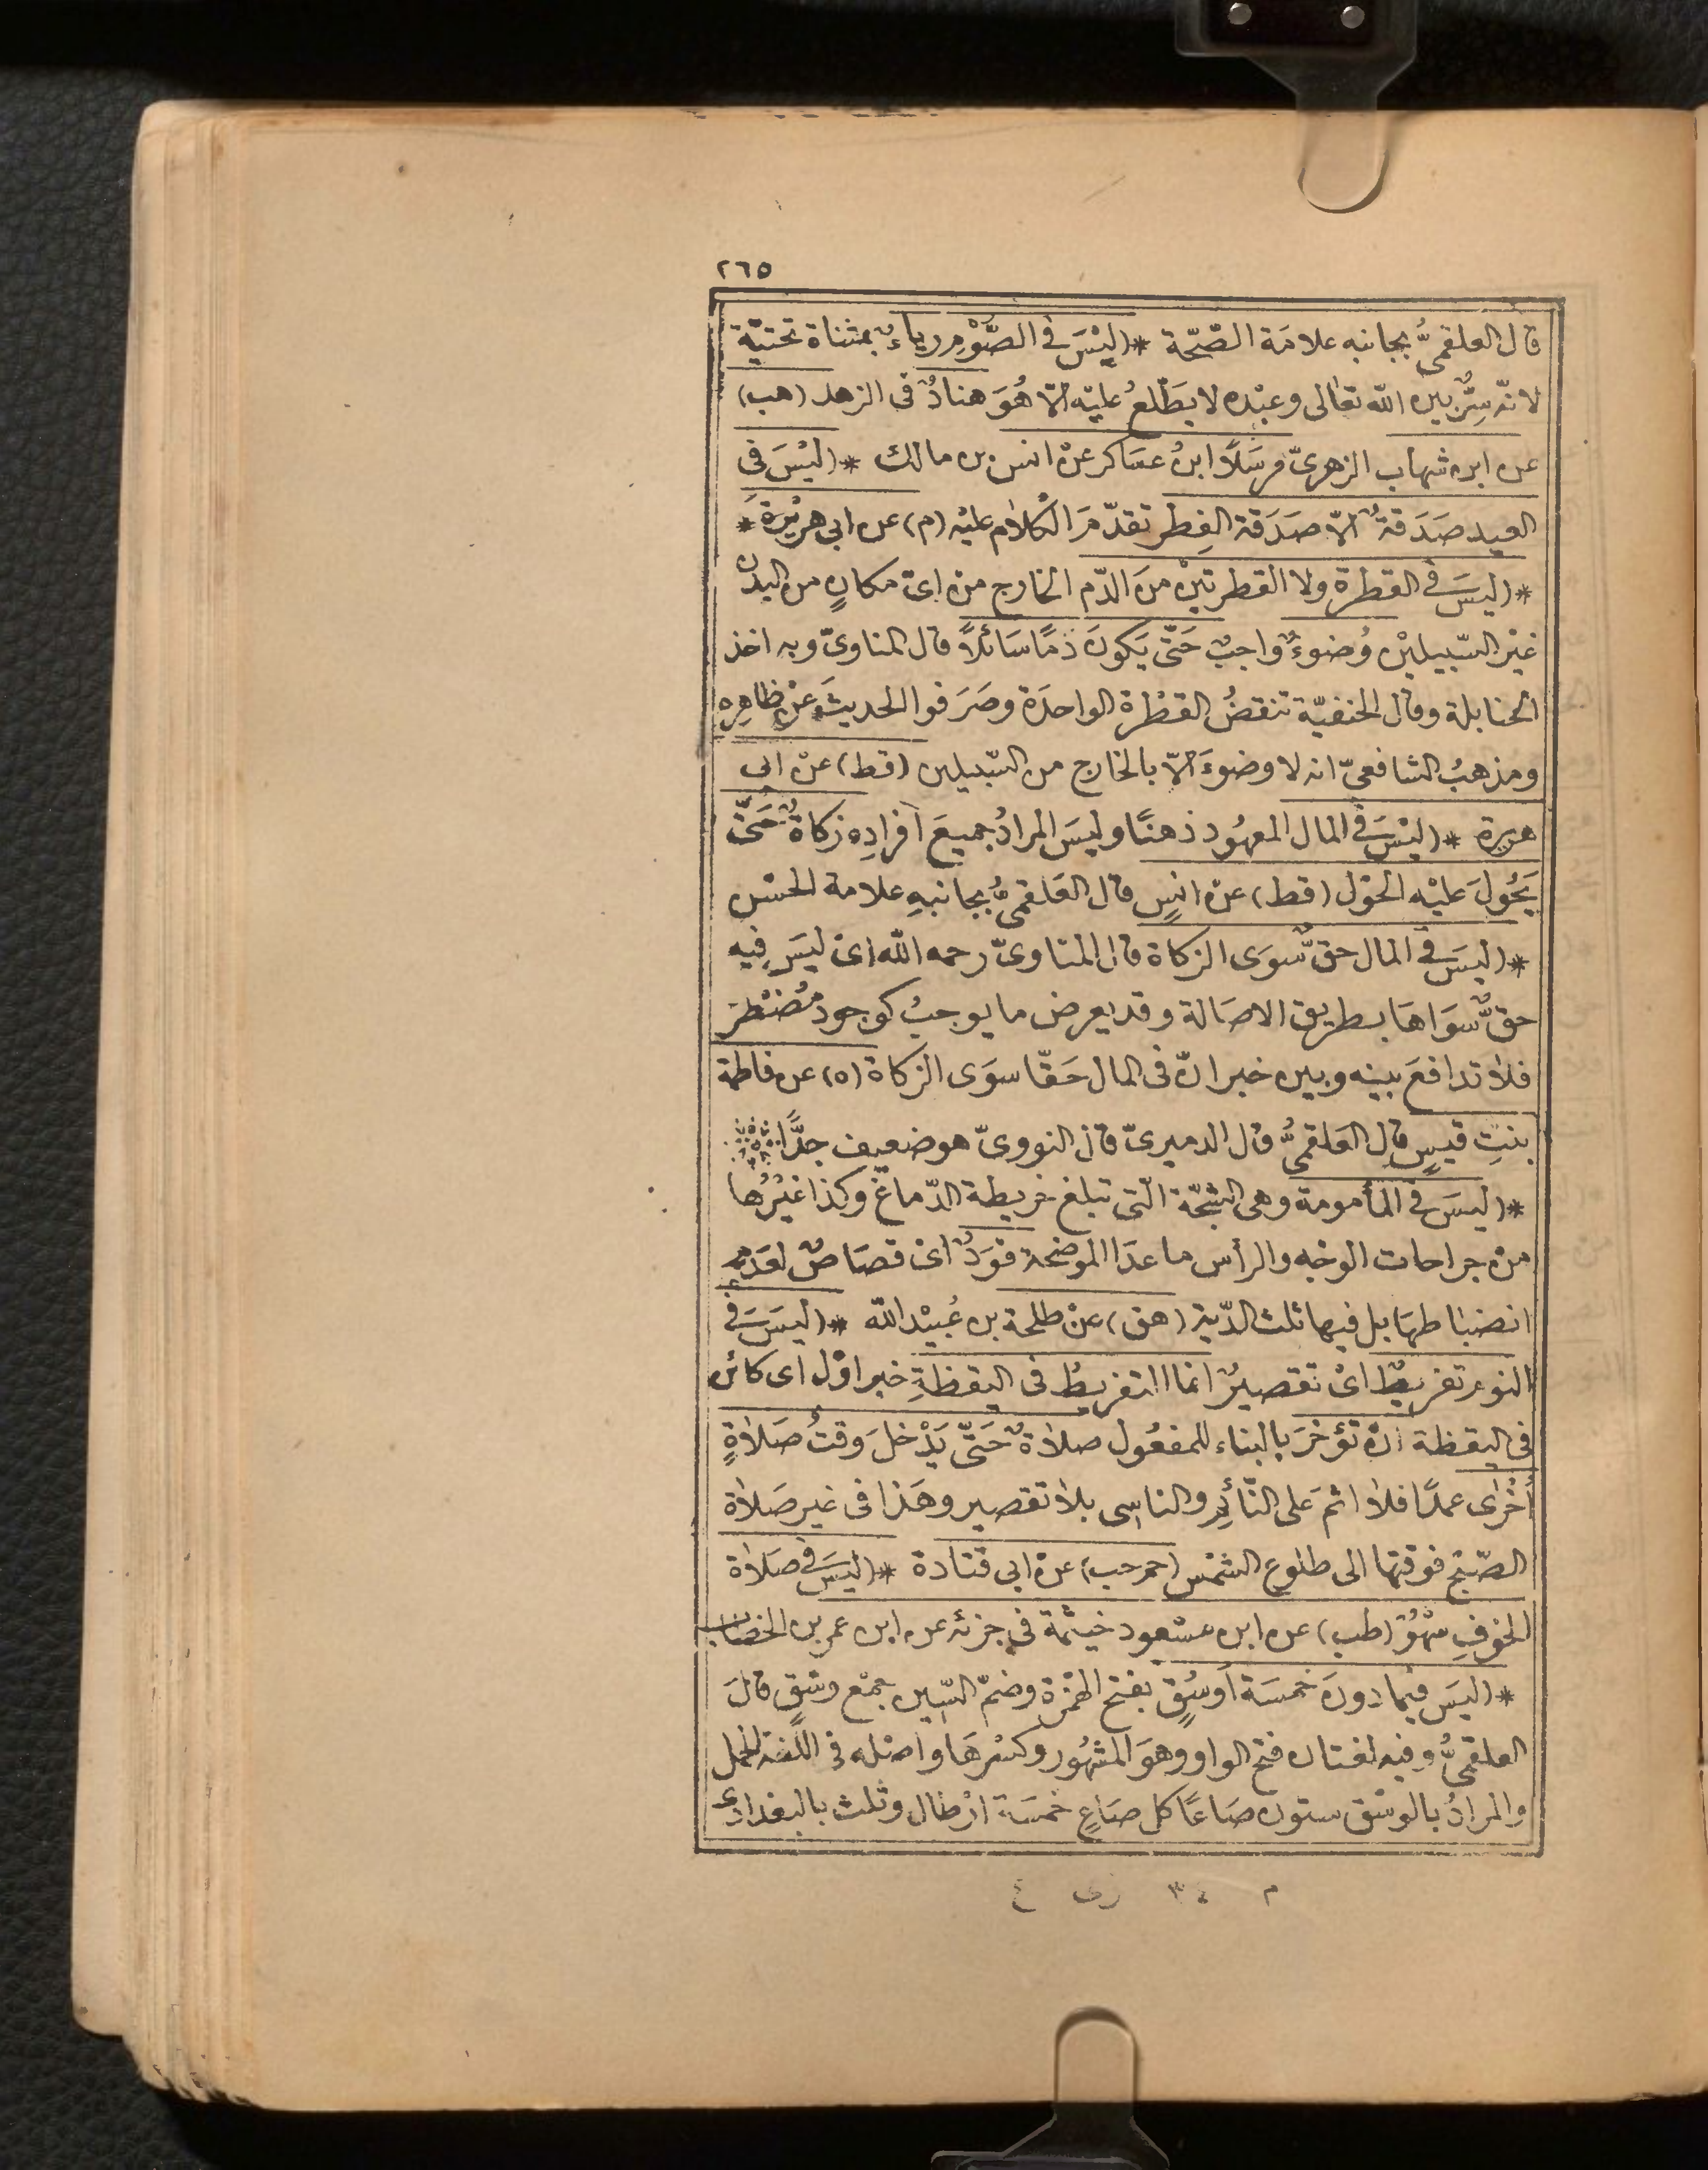 ٢٦٥
قال العلقمىُّ بجانبه علامَة الصّحّة * (ليْسَ فى الصَّوْمِ رياءٌ بمثناة تحتيّة
لانّه سِرٌّ بين الله تعالى وعبْده لا يَطّلعُ عليْه الّا هُوَ هنادٌ فى الزهد (هب)
عن ابن شهاب الزهرىّ مرسَلاً ابنُ عسَاكر عنْ انس بن مالك * (ليْسَ فى
العيد صَدَقةٌ الّا صَدَقة الفِطر تقدّمَ الكلام عليْه (م) عن ابى هريْرةَ *
* (ليسَ فى القطرة ولا القطرتيْن منَ الدّم الخارج منْ اىّ مكانٍ من البدن
غيْر السّبيليْن وُضوءٌ واجبٌ حَتّى يَكونَ دَمًا سَائلاً قال المناوىّ وبه اخذ
الحنابلة وقال الحنفيّة تنقضُ القطْرة الواحدَة وصَرَفوا الحديثَ عنْ ظاهِرِه
ومذهبُ الشافعىّ انه لا وضوءَ الّا بالخارج من السّبيلين (قط) عنْ ابى
هريرة * (ليْسَ فى المال المعهُود ذهنًا وليسَ المرادُ جميعَ افرادِه زكاةٌ حَتّى
يَحُولَ عليْه الحوْل (قط) عنْ انسٍ قال العَلقمىُّ بجانبهِ علامة الحسْن
* (ليسَ فى المال حقٌّ سوَى الزكاة قال المناوىّ رحمه الله اىْ ليسَ فِيه
حقٌّ سوَاهَا بطريق الاصَالة وقد يعرض ما يوجبُ كوجود مُضْطرّ
فلا تدافعَ بينه وبين خبر انّ فى المال حَقّا سوَى الزكاة (ه) عن فاطمة
بنتِ قيسٍ قال العَلقمىُّ قال الدميرىّ قال النووىّ هو ضعيف جدًّا
* (ليسَ فى المأمومة وهى الشجّة الّتى تبلغ خريطة الدّماغ وكذا غيْرُها
منْ جراحات الوجْه والرأس ما عدَا الموضحة قوَدٌ اىْ قصَاصٌ لعَدَمِ
انضباطهَا بل فيها ثلث الدّية (هق) عنْ طلحة بن عُبيْد الله * (ليسَ فى
النوم تفريطٌ اىْ تقصيرٌ انما التفريطُ فى اليقظةِ خبر اوّل اى كائن
فى اليقظة انْ تؤخرَ بالبناء للمفعُول صلاةٌ حَتّى يَدْخلَ وَقتُ صَلاةٍ
أُخْرَى عمدًا فلا اثمَ على النّائمِ والناسِى بلا تقصير وهَذا فى غير صَلاة
الصّبْح فوقتها الى طلوع الشمْس (حم حب) عنْ ابى قتادة * (ليسَ فى صَلاة
الخوْفِ سَهْوٌ (طب) عن ابن مسْعود خيثمة فى جزئه عن ابن عمر بن الخطاب
* (ليسَ فيمَا دونَ خمسَة اَوسُقٍ بفتح الهمْزة وضمّ السّين جمْع وسْقٍ قالَ
العلقمىُّ وفيه لغتان فتح الواو وهوَ المشهُور وكسْرهَا واصْله فى اللّغة الحمل
والمرادُ بالوسْق ستون صَاعًا كل صَاعٍ خمسَة ارْطال وثلث بالبغدادى
م ٣٤ زى ع